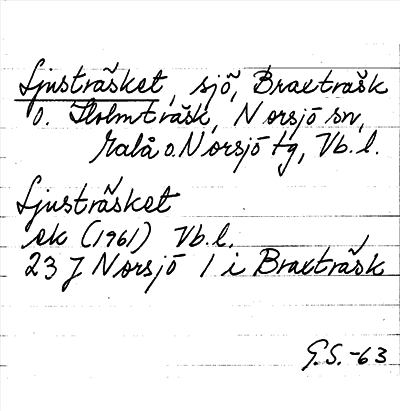 Ljusträsket, sjö, Braxträsk
o. Holmträsk, Norsjö sn,
Malå o. Norsjö tg, Vb.l.
Ljusträsket
ek (1961) Vb.l.
23 J Norsjö 1 i Braxträsk
G.S. -63